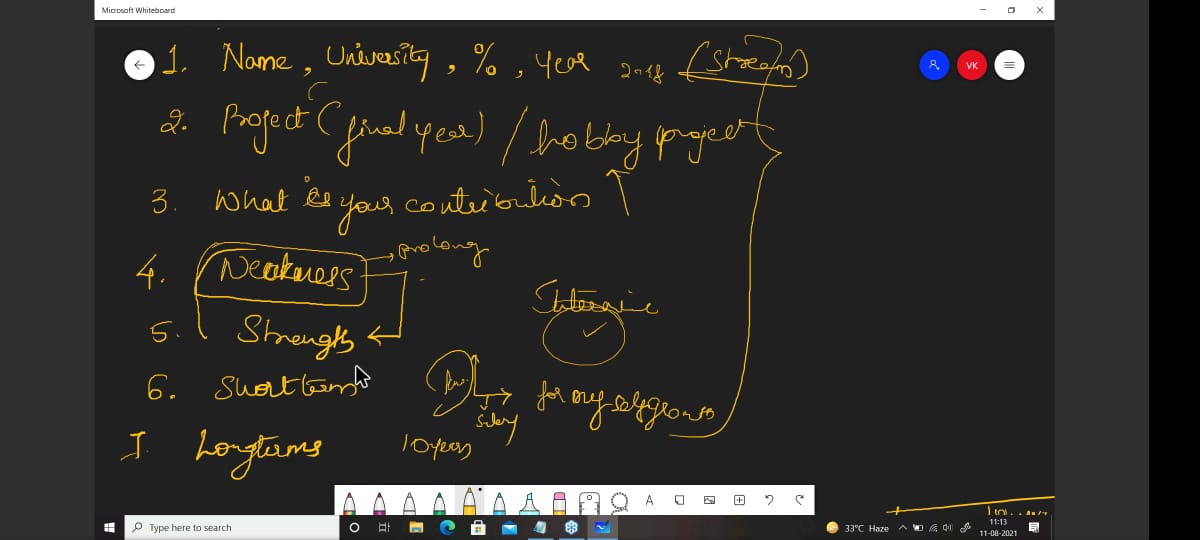 Microsoft Whiteboard
1. Name, University, %, year 2018 (Stream)
VK
2. Project (final year) / hobby project
3. What is your contribution
4. Weakness → prolong
5. Strength
6. Short term
for my selfgrowth
Salary
Longterms 10years
A
Type here to search
33°C Haze
11:13
11-08-2021